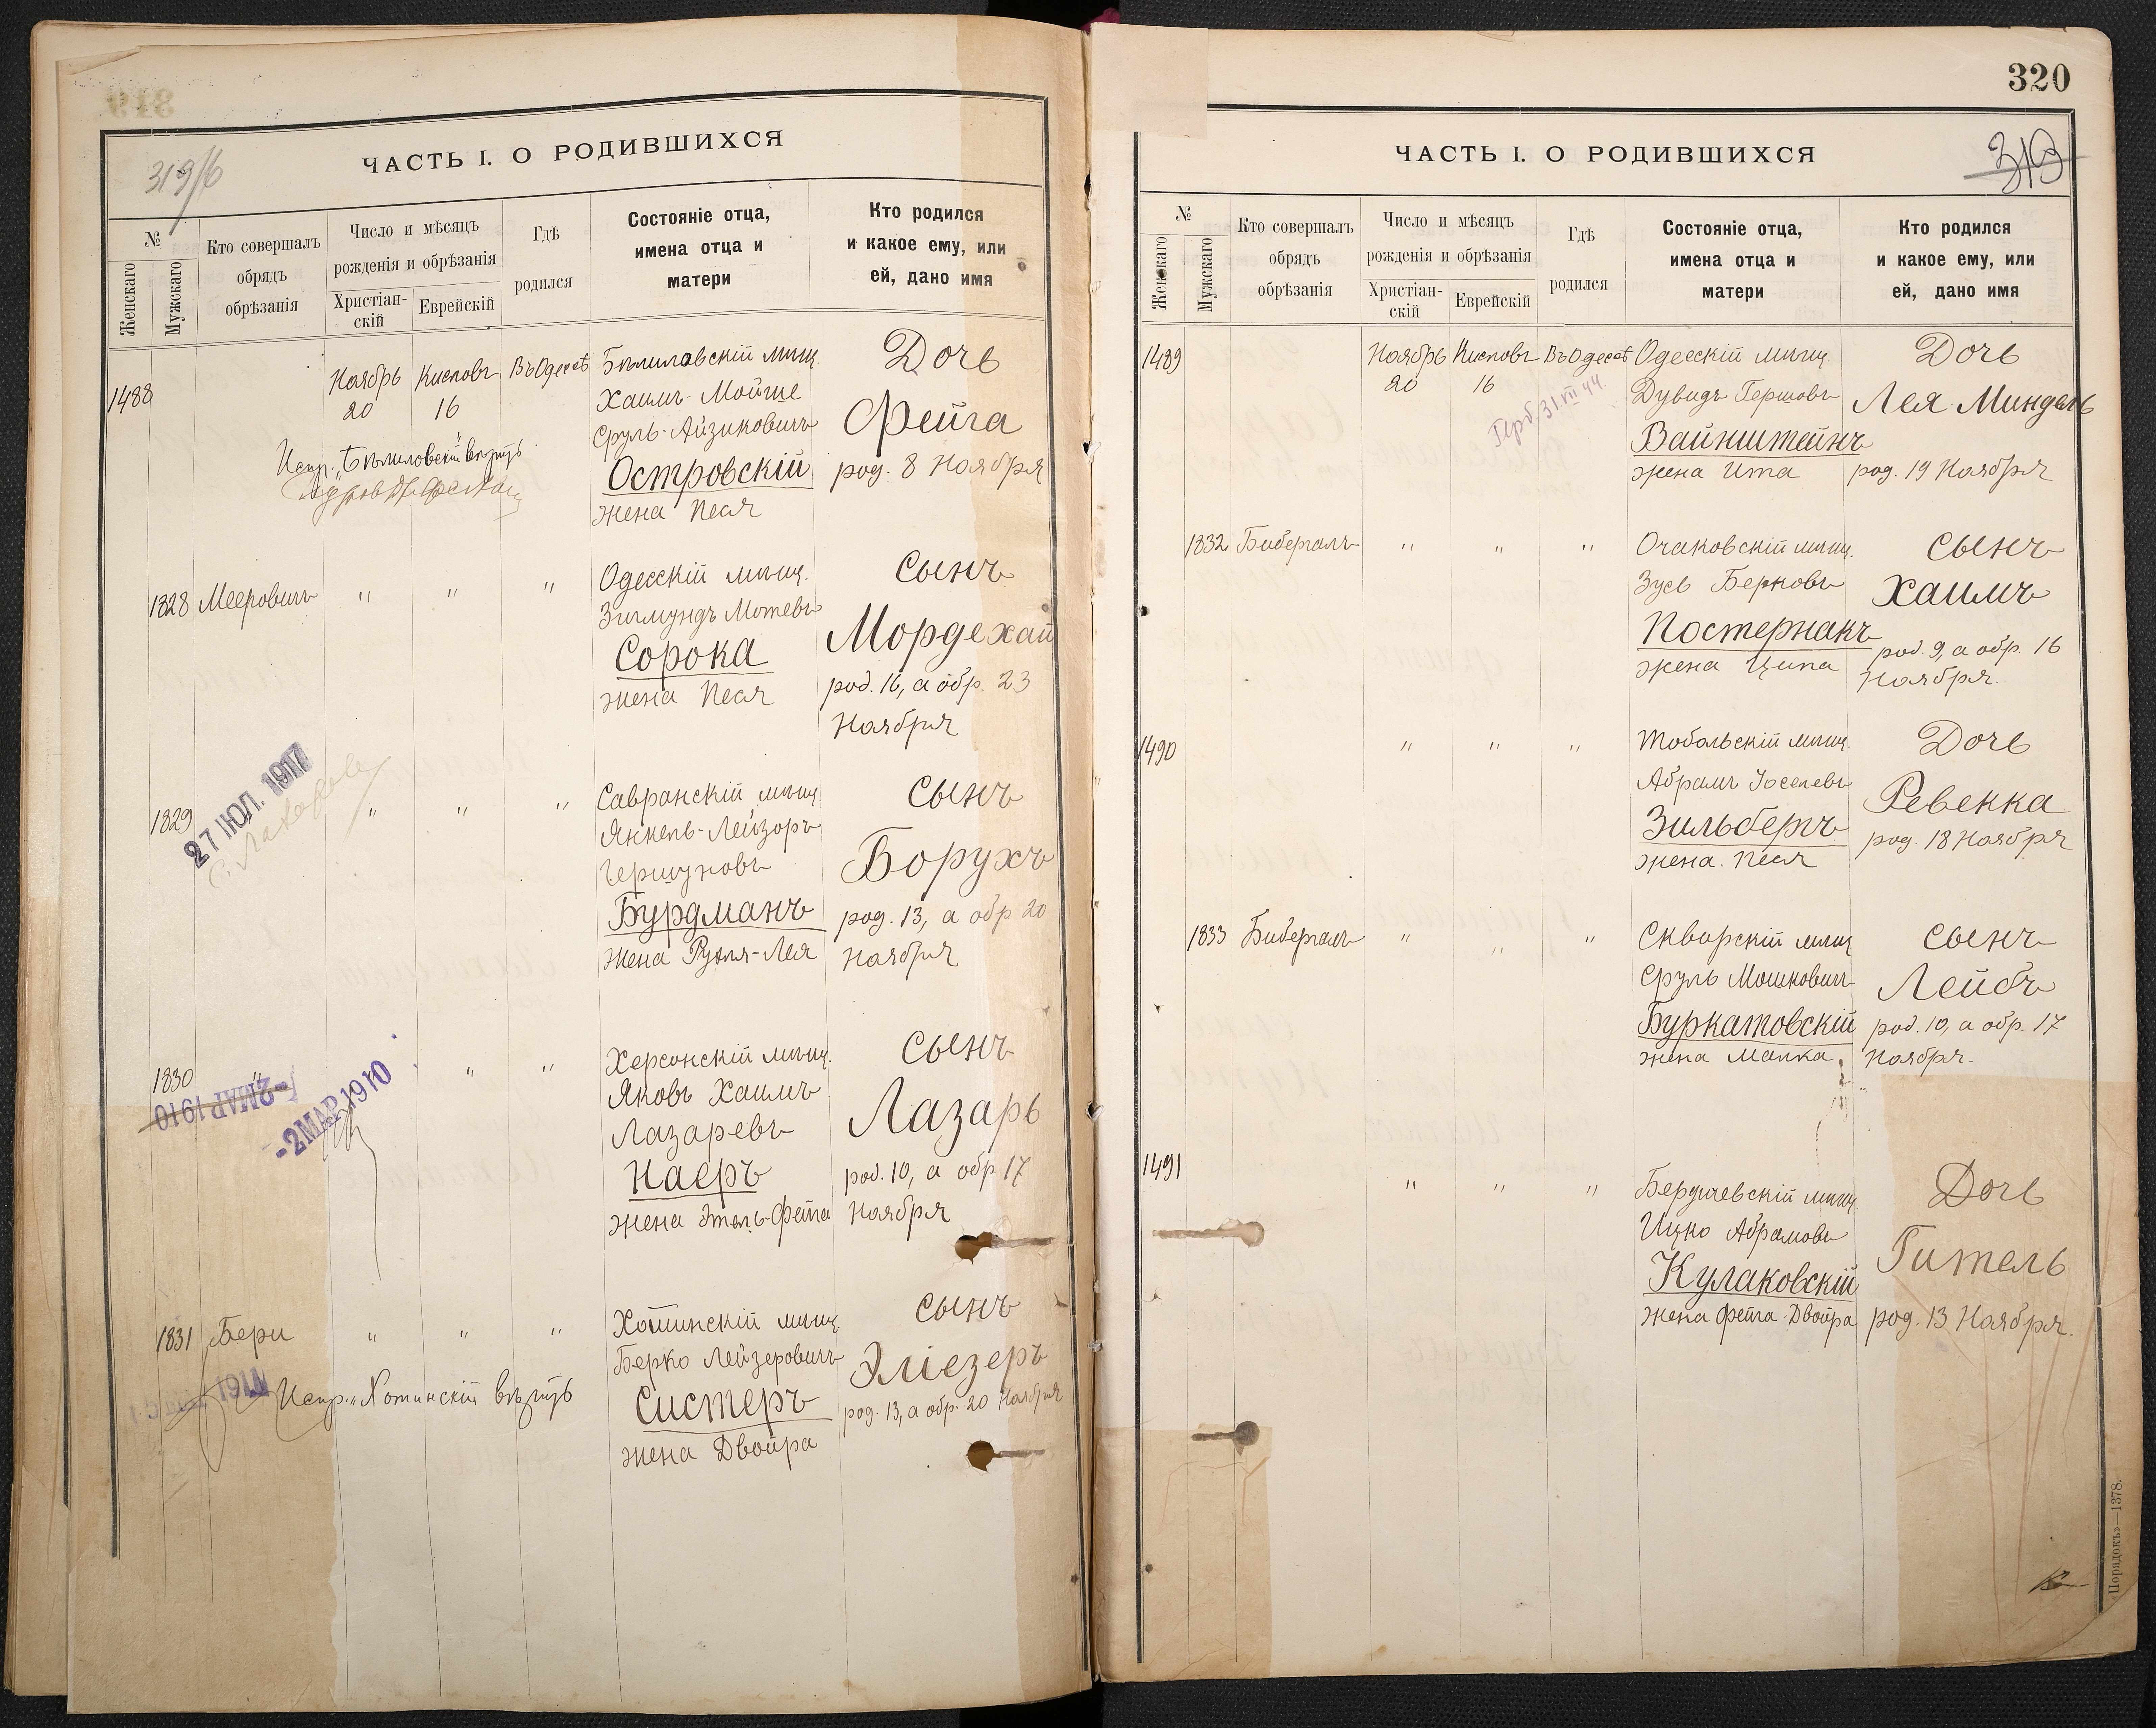 319/б
ЧАСТЬ I. О РОДИВШИХСЯ
№
Женскаго
Мужскаго
Кто совершалъ
обрядъ
обрѣзанія
Число и мѣсяцъ
рожденія и обрѣзанія
Христіан-
скій
Еврейскій
Гдѣ
родился
Состояніе отца,
имена отца и
матери
Кто родился
и какое ему, или
ей, дано имя
1488
Ноябрь
20
Кислевъ
16
Въ Одессѣ
Бѣлиловскій мѣщ.
Хаимъ-Мойше
Сруль-Айзиковичъ
Островскій
жена Песя
Дочь
Фейга
род. 8 Ноября
Испр. „Бѣлиловскій" вѣрить
1828 Мееровичъ " " "
Одесскій мѣщ.
Зигмундъ Мотевъ
Сорока
жена Песя
Сынъ
Мордехай
род. 16, а обр. 23
Ноября
1829 " " "
27 ІЮЛ. 1917
Савранскій мѣщ.
Янкель-Лейзоръ
Гершуновъ
Бурдманъ
жена Рухля-Лея
Сынъ
Борухъ
род. 13, а обр 20
Ноября
1830 " " "
-2 МАР 1910
-2 МАР 1910
Херсонскій мѣщ.
Яковъ Хаимъ
Лазаревъ
Наеръ
жена Этель-Фейга
Сынъ
Лазарь
род. 10, а обр 17
Ноября
1831 Бери " " "
Хотинскій мѣщ.
Берко Лейзеровичъ
Систеръ
жена Двойра
Сынъ
Эліезеръ
род. 13, а обр. 20 Ноября
Испр. „Хотинскій вѣрить
320
319
ЧАСТЬ I. О РОДИВШИХСЯ
№
Женскаго
Мужскаго
Кто совершалъ
обрядъ
обрѣзанія
Число и мѣсяцъ
рожденія и обрѣзанія
Христіан-
скій
Еврейскій
Гдѣ
родился
Состояніе отца,
имена отца и
матери
Кто родился
и какое ему, или
ей, дано имя
1489
Ноябрь
20
Кислевъ
16
Въ Одессѣ
Герб. 31 VII 44.
Одесскій мѣщ.
Дувидъ Гершовъ
Вайнштейнъ
жена Ита
Дочь
Лея Миндель
род. 19 Ноября
1832 Бибергалъ " " "
Очаковскій мѣщ.
Зусь Берковъ
Постернакъ
жена Ципа
Сынъ
Хаимъ
род. 9, а обр. 16
Ноября.
1490 " " "
Тобольскій мѣщ.
Абрамъ Іоселевъ
Зильберъ
жена Песя
Дочь
Ревекка
род. 18 Ноября
1833 Бибергалъ " " "
Сквирскій мѣщ
Сруль Мошковичъ
Буркатовскій
жена Малка
Сынъ
Лейбъ
род. 10, а обр. 17
Ноября.
1491 " " "
Бердичевскій мѣщ.
Ицко Абрамовъ
Кулаковскій
жена Фейга Двойра
Дочь
Гитель
род. 13 Ноября.
„Порядокъ»—1378.